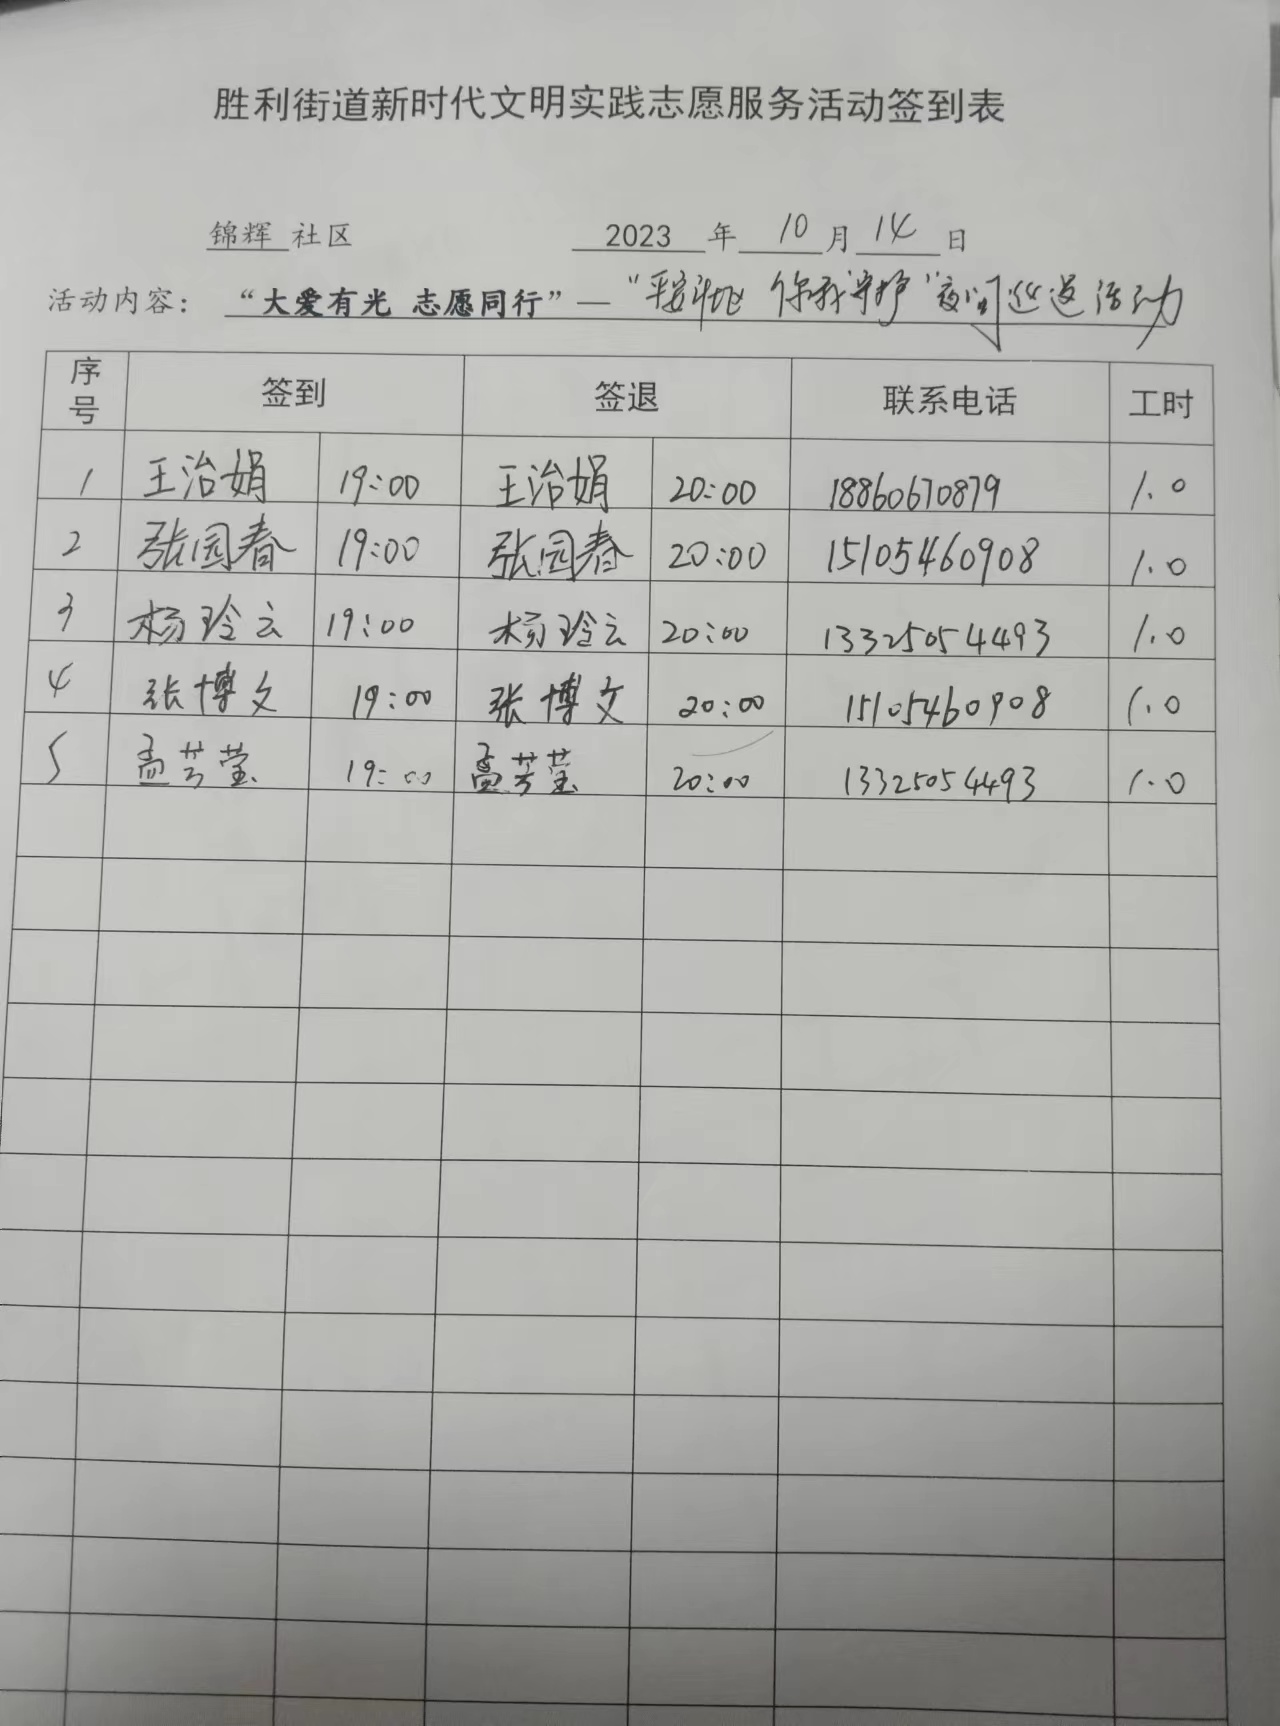 胜利街道新时代文明实践志愿服务活动签到表
锦辉 社区 2023 年 10 月 14 日
活动内容： “大爱有光 志愿同行”—“平安 你我守护”夜间巡逻活动
序号 签到 签退 联系电话 工时
1 王治娟 19:00 王治娟 20:00 18860670879 1.0
2 张园春 19:00 张园春 20:00 15105460908 1.0
3 杨玲云 19:00 杨玲云 20:00 13325054493 1.0
4 张博文 19:00 张博文 20:00 15105460908 1.0
5 孟芳莹 19:00 孟芳莹 20:00 13325054493 1.0